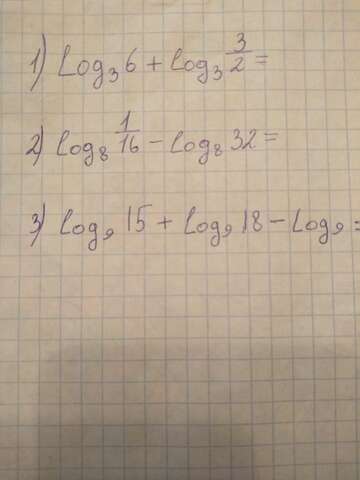 1) log₃6 + log₃ 3/2 =
2) log₈ 1/16 - log₈ 32 =
3) log₉ 15 + log₉ 18 - log₉ =